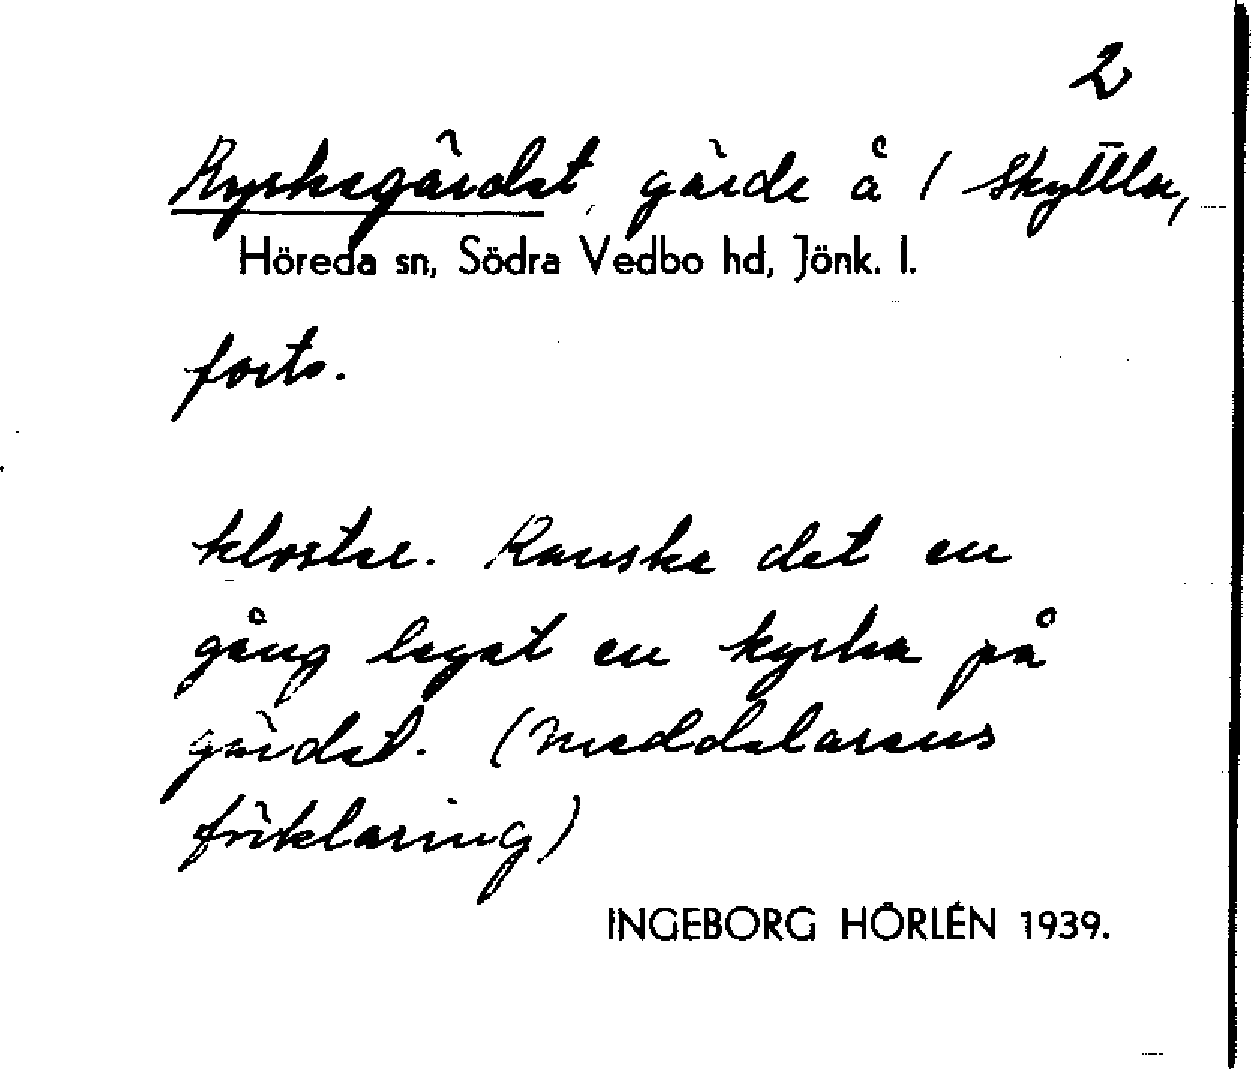 2
Kyrkegärdet, gärde å 1 Skyttla,
Höreda sn, Södra Vedbo hd, Jönk. l.
forts.
klostre. Kanske det en
gång legat en kyrka på
gärdet. (Meddelarens
förklaring)
INGEBORG HÖRLÉN 1939.